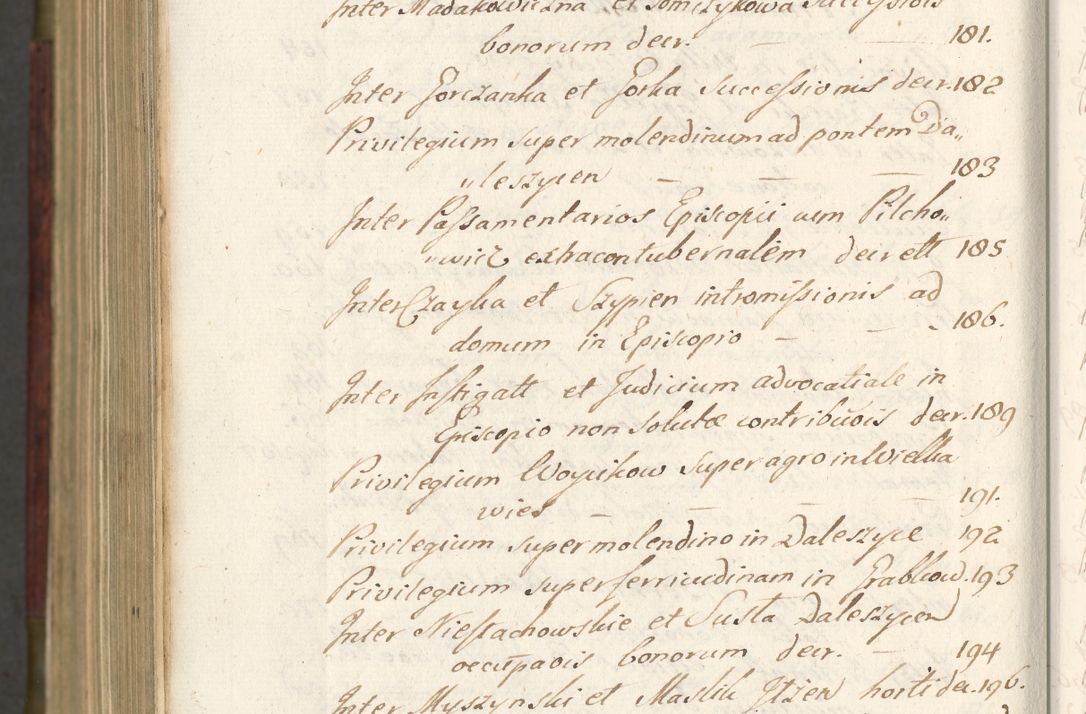 Inter Madakowiczna et Tomczykowa Successiois
bonorum decr. — — 181.
Inter Gorczanka et Gorka Successionis decr. 182
Privilegium super molendinum ad pontem Da„
„leszycen — — — 183
Inter Passamentarios Episcopii cum Pilcho„
„wicz exhacontubernalem decrett 185
Inter Czayka et Szypien intromissionis ad
domum in Episcopio — — - 186.
Inter Instigatt et Judicium advocatiale in
Episcopio non solutæ contribuõis decr. 189
Privilegium Woyikow super agro in Wielka
wies — — — — 191.
Privilegium super molendino in Daleszyce 192
Privilegium super ferricudinam in Grabkow. 193
Inter Niestachowskie et Susta Daleszycen
occupaois bonorum decr. — 194
Inter Myszynski et Maslik Itzien horti de. 196.